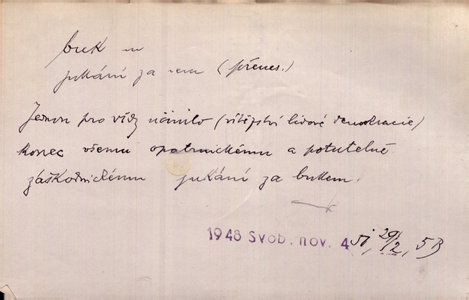 buk m
jukání za ním (přenes.)
Jednou pro vždy učinilo (vítězství lidové demokracie)
konec všemu opatrnickému a potutelně
záškodnickému jukání za bukem.
1948 Svob. nov. 45, 29/2, 5B